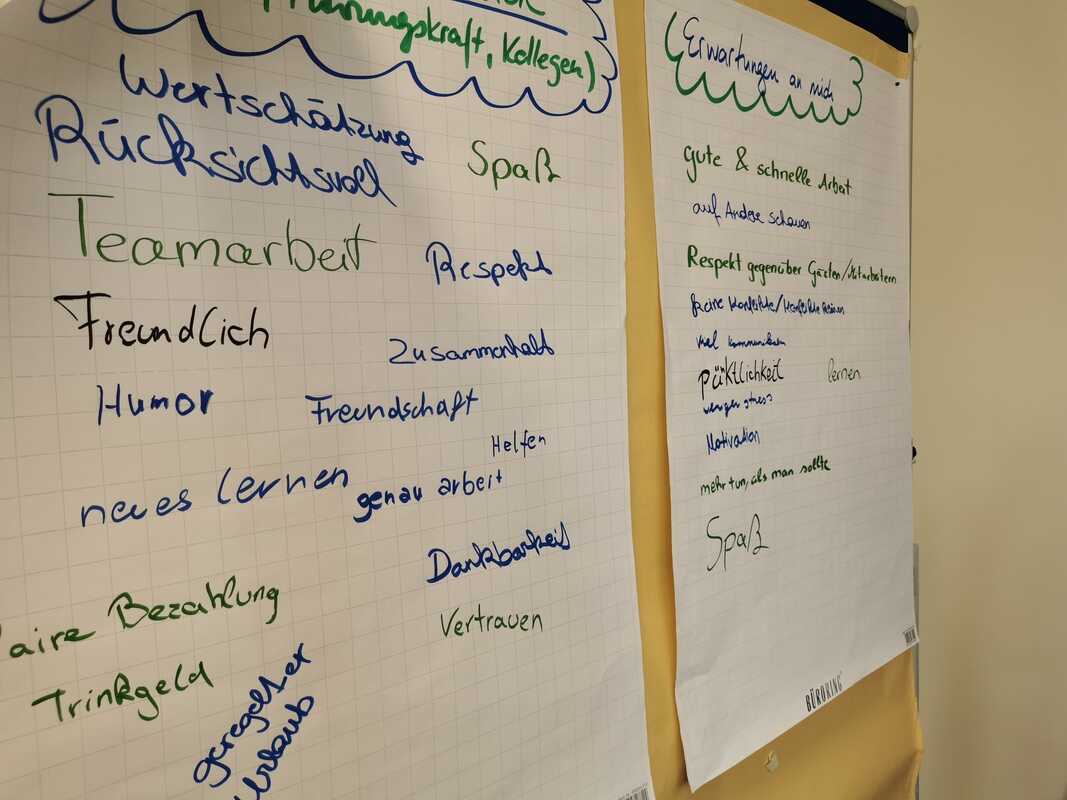 (Führungskraft, Kollegen)
Wertschätzung
Rücksichtsvoll
Spaß
Teamarbeit
Respekt
Freundlich
Zusammenhalt
Humor
Freundschaft
Helfen
neues lernen
genau arbeit
Dankbarkeit
faire Bezahlung
Vertrauen
Trinkgeld
geregelter
Urlaub
Erwartungen an mich
gute & schnelle Arbeit
auf Andere schauen
Respekt gegenüber Gästen/Mitarbeitern
keine Konflikte/
viel kommunikation
pünktlichkeit
lernen
weniger stress
Motivation
mehr tun, als man sollte
Spaß
BÜRORING